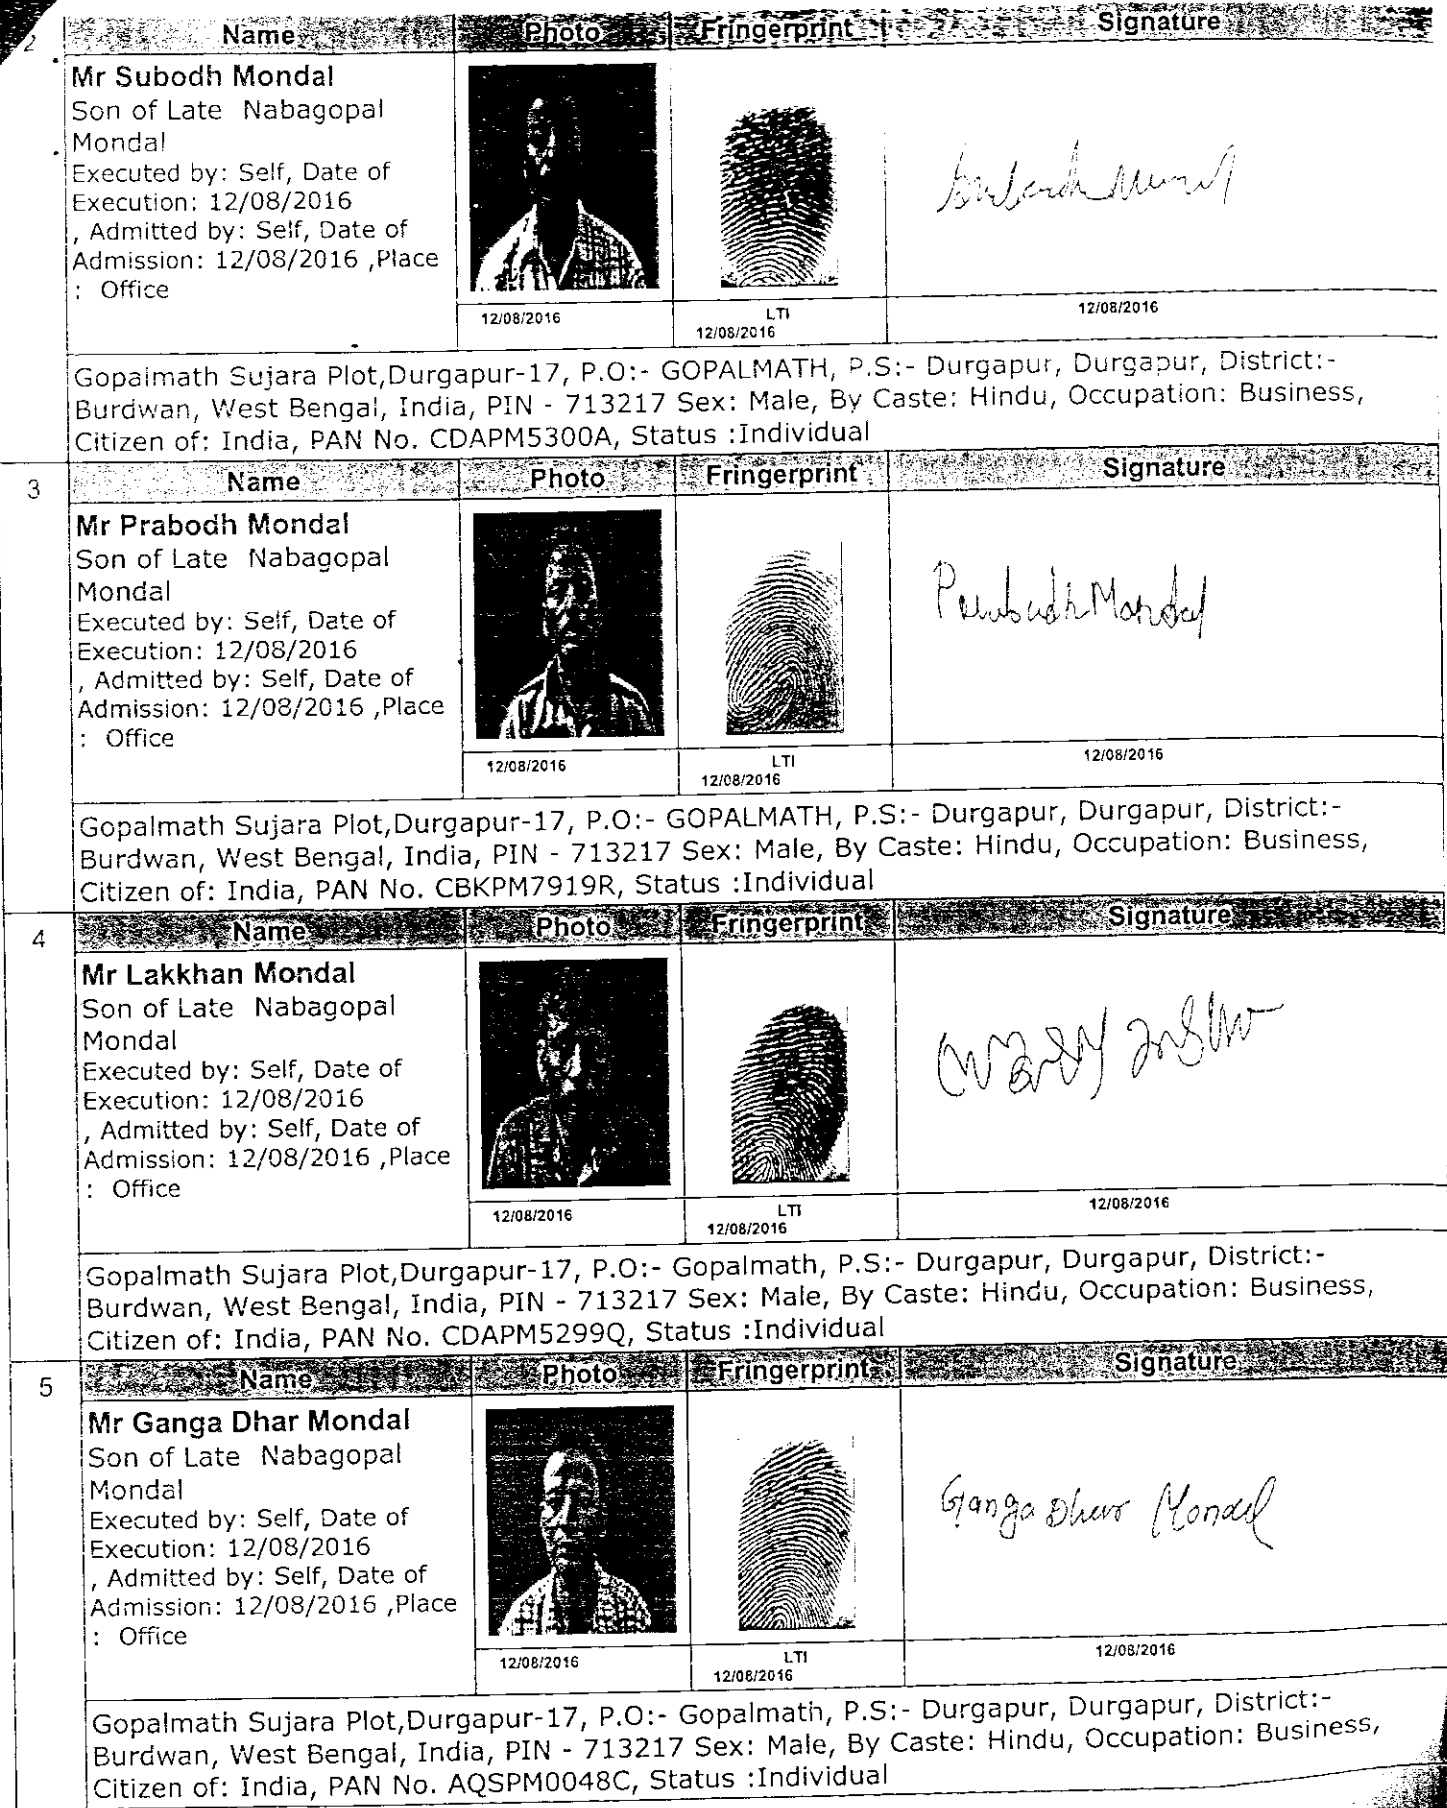 2 Name Photo Fringerprint Signature
Mr Subodh Mondal
Son of Late Nabagopal
Mondal
Executed by: Self, Date of
Execution: 12/08/2016
, Admitted by: Self, Date of
Admission: 12/08/2016 ,Place
: Office
12/08/2016 LTI 12/08/2016
12/08/2016
Gopalmath Sujara Plot,Durgapur-17, P.O:- GOPALMATH, P.S:- Durgapur, Durgapur, District:-
Burdwan, West Bengal, India, PIN - 713217 Sex: Male, By Caste: Hindu, Occupation: Business,
Citizen of: India, PAN No. CDAPM5300A, Status :Individual
3 Name Photo Fringerprint Signature
Mr Prabodh Mondal
Son of Late Nabagopal
Mondal
Executed by: Self, Date of
Execution: 12/08/2016
, Admitted by: Self, Date of
Admission: 12/08/2016 ,Place
: Office
Mondal
12/08/2016 LTI 12/08/2016
12/08/2016
Gopalmath Sujara Plot,Durgapur-17, P.O:- GOPALMATH, P.S:- Durgapur, Durgapur, District:-
Burdwan, West Bengal, India, PIN - 713217 Sex: Male, By Caste: Hindu, Occupation: Business,
Citizen of: India, PAN No. CBKPM7919R, Status :Individual
4 Name Photo Fringerprint Signature
Mr Lakkhan Mondal
Son of Late Nabagopal
Mondal
Executed by: Self, Date of
Execution: 12/08/2016
, Admitted by: Self, Date of
Admission: 12/08/2016 ,Place
: Office
12/08/2016 LTI 12/08/2016
12/08/2016
Gopalmath Sujara Plot,Durgapur-17, P.O:- Gopalmath, P.S:- Durgapur, Durgapur, District:-
Burdwan, West Bengal, India, PIN - 713217 Sex: Male, By Caste: Hindu, Occupation: Business,
Citizen of: India, PAN No. CDAPM5299Q, Status :Individual
5 Name Photo Fringerprint Signature
Mr Ganga Dhar Mondal
Son of Late Nabagopal
Mondal
Executed by: Self, Date of
Execution: 12/08/2016
, Admitted by: Self, Date of
Admission: 12/08/2016 ,Place
: Office
Ganga Dhar Mondal
12/08/2016 LTI 12/08/2016
12/08/2016
Gopalmath Sujara Plot,Durgapur-17, P.O:- Gopalmath, P.S:- Durgapur, Durgapur, District:-
Burdwan, West Bengal, India, PIN - 713217 Sex: Male, By Caste: Hindu, Occupation: Business,
Citizen of: India, PAN No. AQSPM0048C, Status :Individual